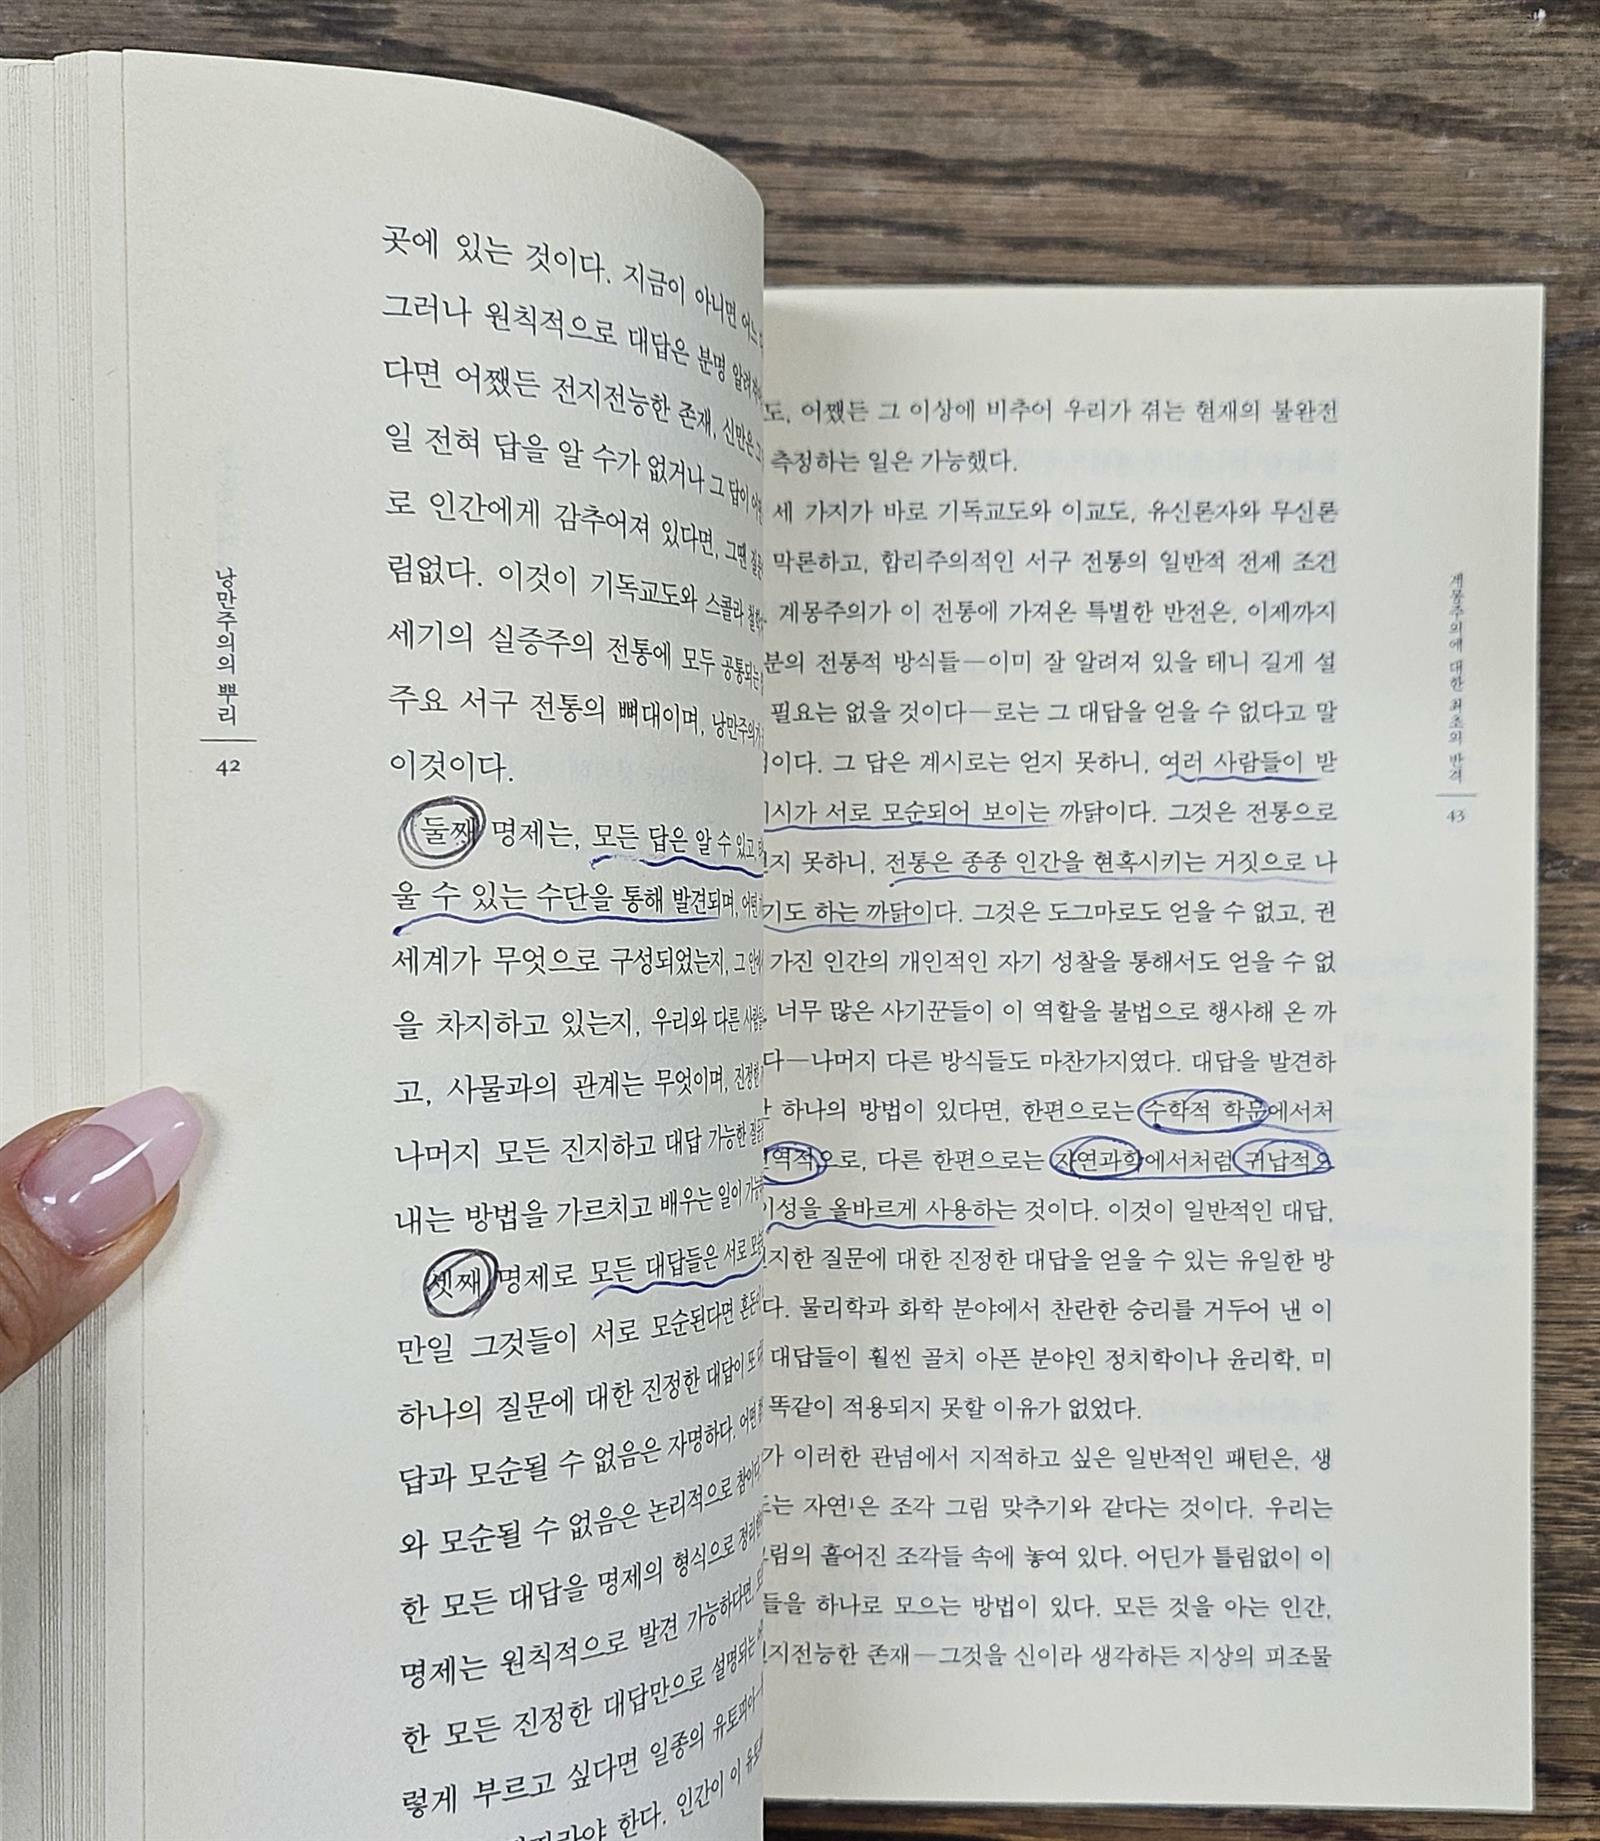 낭만주의의 뿌리
42
곳에 있는 것이다. 지금이 아니면 어느
그러나 원칙적으로 대답은 분명
다면 어쨌든 전지전능한 존재, 신만은
일 전혀 답을 알 수가 없거나 그 답이
로 인간에게 감추어져 있다면, 그땐
림없다. 이것이 기독교도와 스콜라
세기의 실증주의 전통에 모두
주요 서구 전통의 뼈대이며,
이것이다.
둘째 명제는, 모든 답은 알 수 있고,
울 수 있는 수단을 통해 발견되며, 어떤
세계가 무엇으로 구성되었는지,
을 차지하고 있는지, 우리와 다른
고, 사물과의 관계는 무엇이며, 진정한
나머지 모든 진지하고 대답 가능한
내는 방법을 가르치고 배우는 일이
셋째 명제로 모든 대답들은 서로
만일 그것들이 서로 모순된다면
하나의 질문에 대한 진정한 대답이
답과 모순될 수 없음은 자명하다. 어떤
와 모순될 수 없음은 논리적으로
한 모든 대답을 명제의 형식으로
명제는 원칙적으로 발견 가능하다면,
한 모든 진정한 대답만으로 설명되는
렇게 부르고 싶다면 일종의
한다. 인간이 이
도, 어쨌든 그 이상에 비추어 우리가 겪는 현재의 불완전
측정하는 일은 가능했다.
세 가지가 바로 기독교도와 이교도, 유신론자와 무신론
막론하고, 합리주의적인 서구 전통의 일반적 전제 조건
계몽주의가 이 전통에 가져온 특별한 반전은, 이제까지
분의 전통적 방식들—이미 잘 알려져 있을 테니 길게 설
필요는 없을 것이다—로는 그 대답을 얻을 수 없다고 말
이다. 그 답은 계시로는 얻지 못하니, 여러 사람들이 받
시가 서로 모순되어 보이는 까닭이다. 그것은 전통으로
지 못하니, 전통은 종종 인간을 현혹시키는 거짓으로 나
기도 하는 까닭이다. 그것은 도그마로도 얻을 수 없고, 권
가진 인간의 개인적인 자기 성찰을 통해서도 얻을 수 없
너무 많은 사기꾼들이 이 역할을 불법으로 행사해 온 까
다—나머지 다른 방식들도 마찬가지였다. 대답을 발견하
하나의 방법이 있다면, 한편으로는 수학적 학문에서처
역적으로, 다른 한편으로는 자연과학에서처럼 귀납적으
이성을 올바르게 사용하는 것이다. 이것이 일반적인 대답,
지한 질문에 대한 진정한 대답을 얻을 수 있는 유일한 방
다. 물리학과 화학 분야에서 찬란한 승리를 거두어 낸 이
대답들이 훨씬 골치 아픈 분야인 정치학이나 윤리학, 미
똑같이 적용되지 못할 이유가 없었다.
가 이러한 관념에서 지적하고 싶은 일반적인 패턴은, 생
또는 자연¹은 조각 그림 맞추기와 같다는 것이다. 우리는
그림의 흩어진 조각들 속에 놓여 있다. 어딘가 틀림없이 이
들을 하나로 모으는 방법이 있다. 모든 것을 아는 인간,
지전능한 존재—그것을 신이라 생각하든 지상의 피조물
계몽주의에 대한 최초의 반격
43